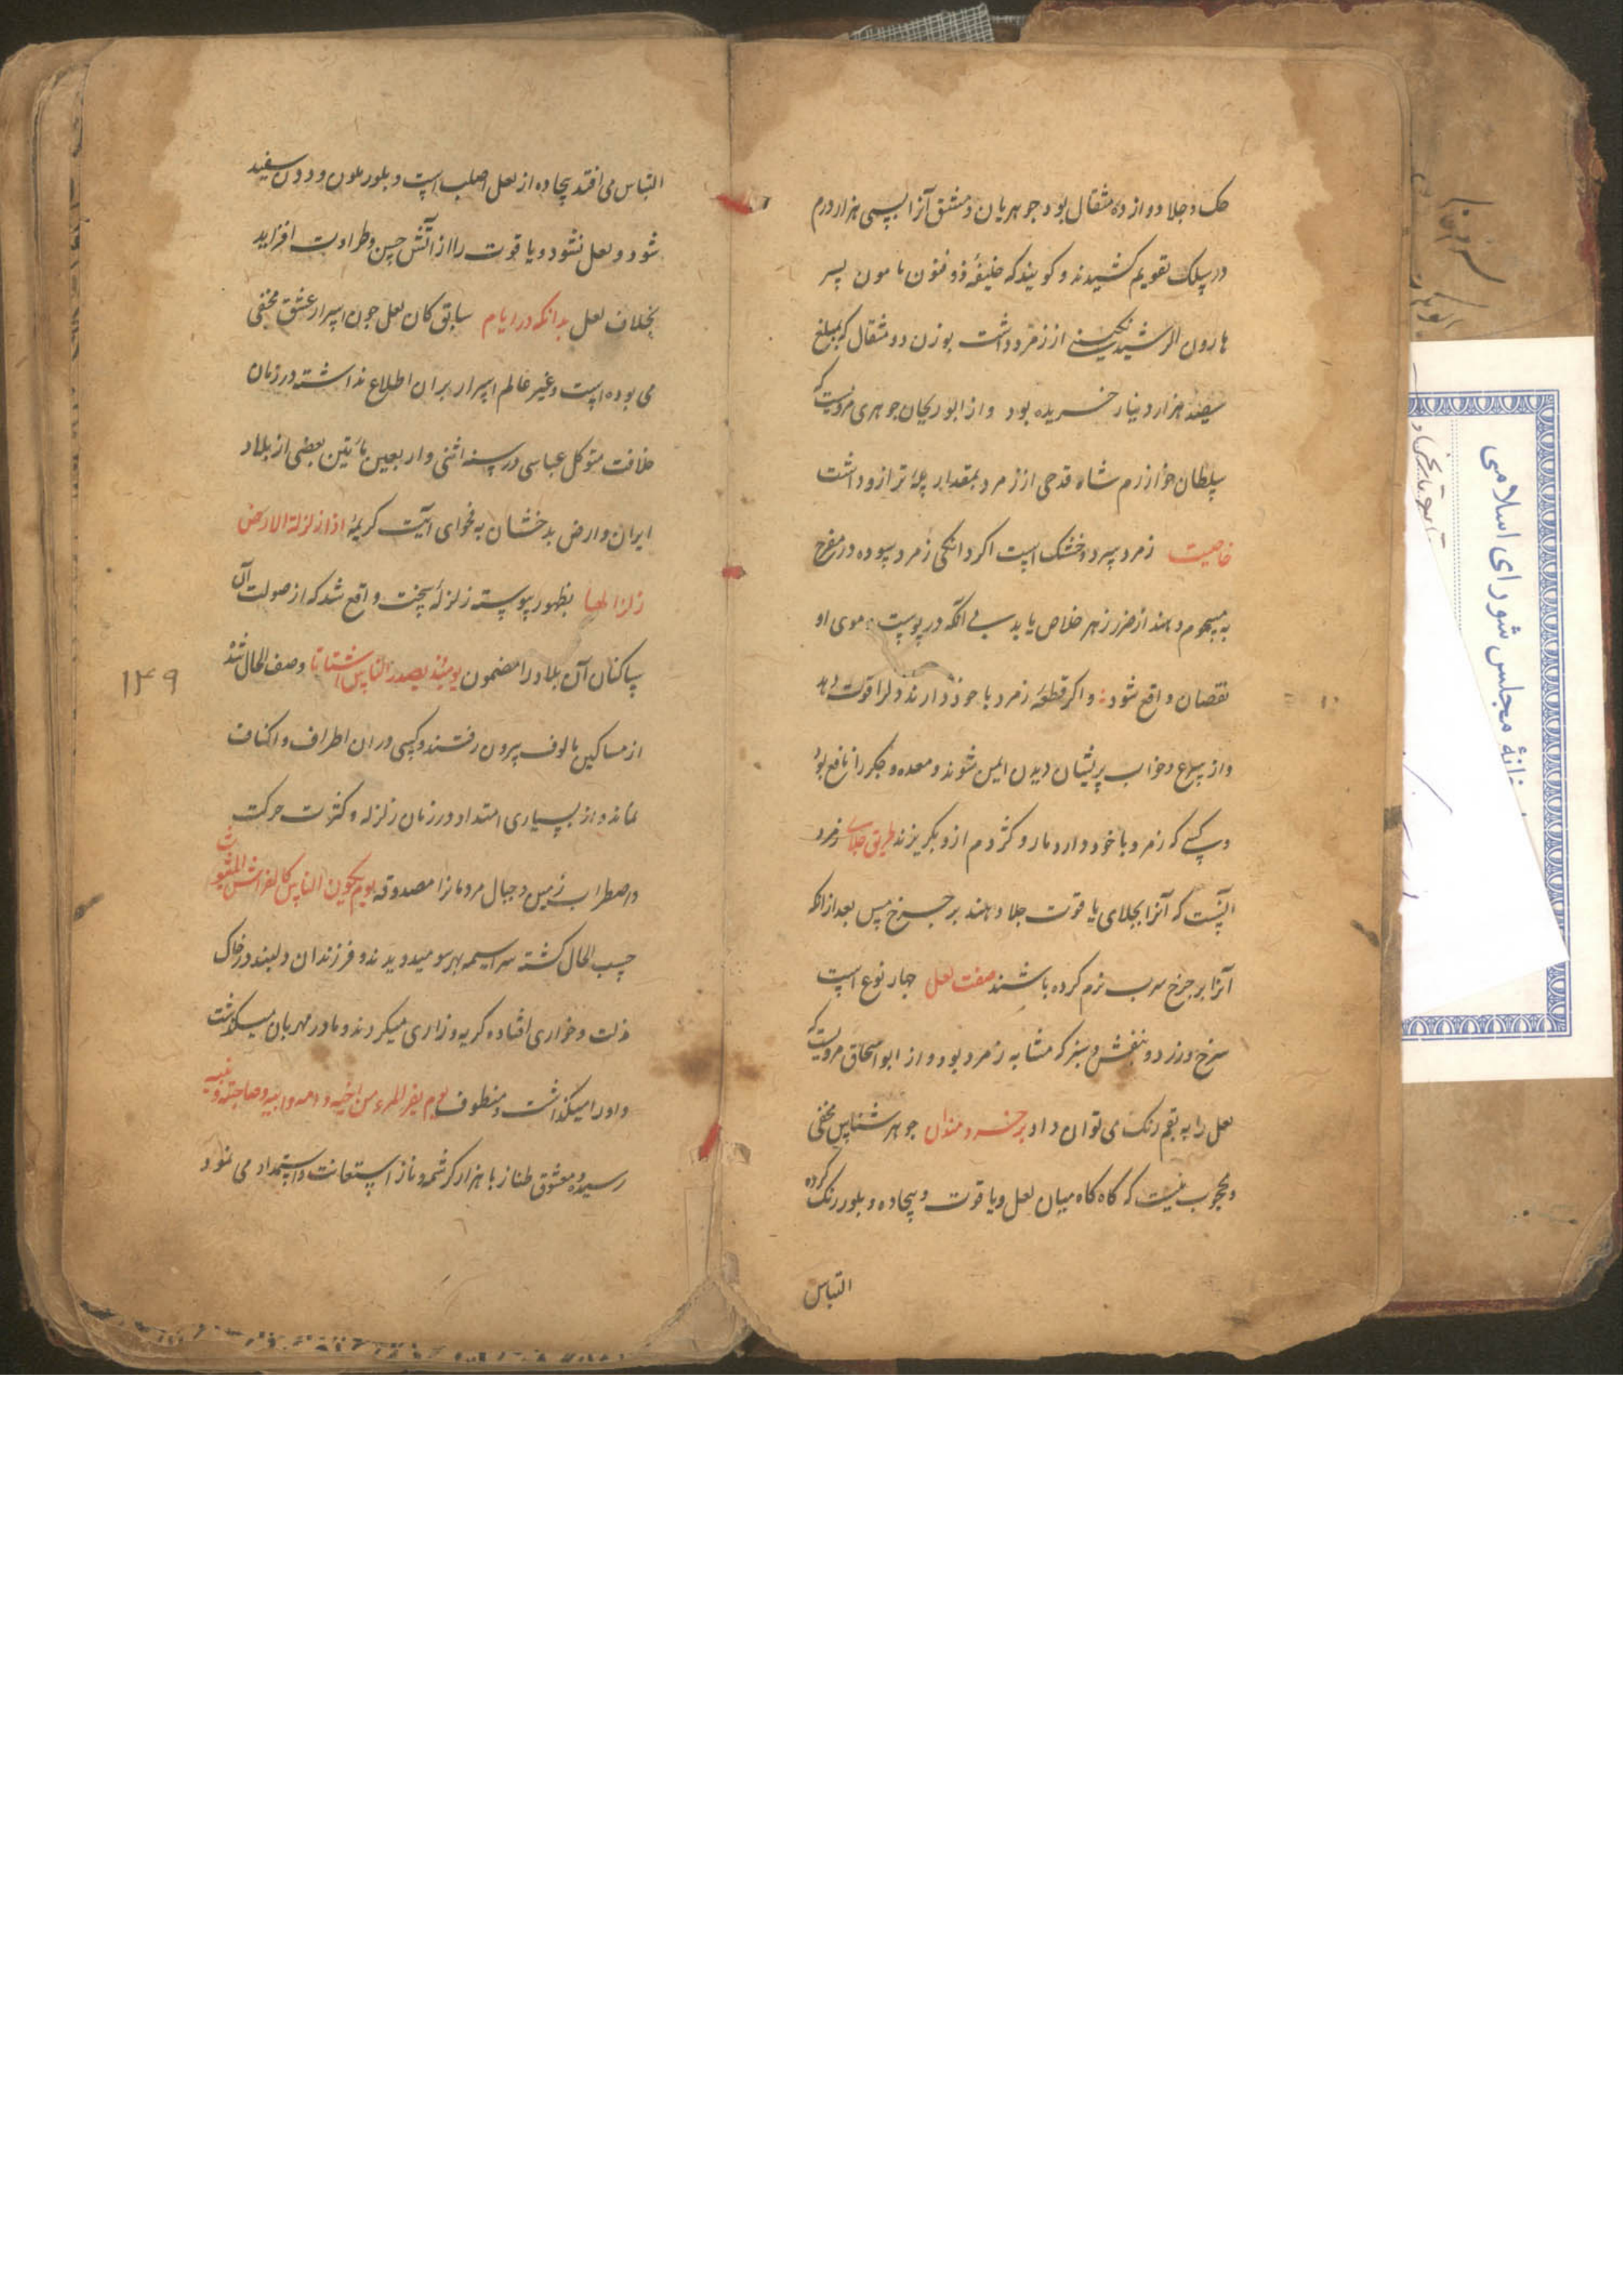 حک و جلا دوازده مثقال بود جوهریان دمشق آنرا بسی هزار درم
در سلک تقویم کشیدند و کویند که خلیفهٔ ذو فنون مامون پسر
هارون الرشید نکینی از زمرد داشت بوزن دو مثقال که بمبلغ
سیصد هزار دینار خریده بود و از ابو ریحان جوهری مرویست که
سلطان خوارزم شاه قدحی از زمرد بمقدار پلهٔ ترازو داشت
خاصیت زمرد سرد و خشک است اکر دانکی زمرد سوده در مفرح
به مسموم دهند از ضرر زهر خلاص یابد بی انکه در پوست و موی او
نقصان واقع شود و اکر قطعهٔ زمرد با خود دارند دلرا قوت دهد
و از صرع و خواب پریشان دیدن ایمن شوند و معده و جکر را نافع بود
و کسی که زمرد با خود دارد مار و کژدم ازو بکریزند طریق جلای زمرد
اینست که آنرا بجلای یاقوت جلا دهند بر چرخ مس بعد از انکه
آنرا بر چرخ سرب نرم کرده باشند صفت لعل چهار نوع است
سرخ و زرد و بنفش و سبز که مشابه زمرد بود و از ابو اسحاق مرویست که
لعل را به بقم رنک می توان داد بر خردمندان جوهر شناس مخفی
و محجوب نیست که کاه کاه میان لعل و یاقوت و بیجاده و بلور رنک کرده
التباس
التباس می افتد بیجاده از لعل اصلب است و بلور ملون و دون سفید
شود و لعل نشود و یاقوت را از آتش حسن و طراوت افزاید
بخلاف لعل بدانکه در ایام سابق کان لعل چون اسرار عشق مخفی
می بوده است و غیر عالم اسرار بران اطلاع نداشته در زمان
خلافت متوکل عباسی در سنه اثنی و اربعین مأتین بعضی از بلاد
ایران و ارض بدخشان به فحوای آیت کریمهٔ اذا زلزلة الارض
زلزالها بظهور پیوسته زلزلهٔ سخت واقع شد که از صولت آن
ساکنان آن بلاد را مضمون یومئذ یصدر الناس اشتاتا وصف الحال شد
۱۴۹
از مساکین مالوف بیرون رفتند و کسی در ان اطراف و اکناف
نماند و از بسیاری امتداد در زمان زلزله و کثرت حرکت
و اضطراب زمین و جبال مردمانرا مصدوقه یوم یکون الناس کالفراش المبثوث
حسب الحال کشته سراسیمه بهر سو میدویدند و فرزندان دلبند در خاک
مذلت و خواری افتاده کریه و زاری میکردند و مادر مهربان میکذشت
و او را میکذاشت و منطوق یوم یفر المرء من اخیه و امه و ابیه و صاحبته و بنیه
رسیده و معشوق طناز با هزار کرشمه و ناز استعانت و استمداد می نمود
مجلس شورای اسلامی